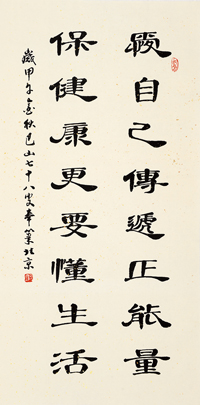 自己傳遞正能量
保健康更要懂生活
歲甲午金秋巴山七十八叟奉北京